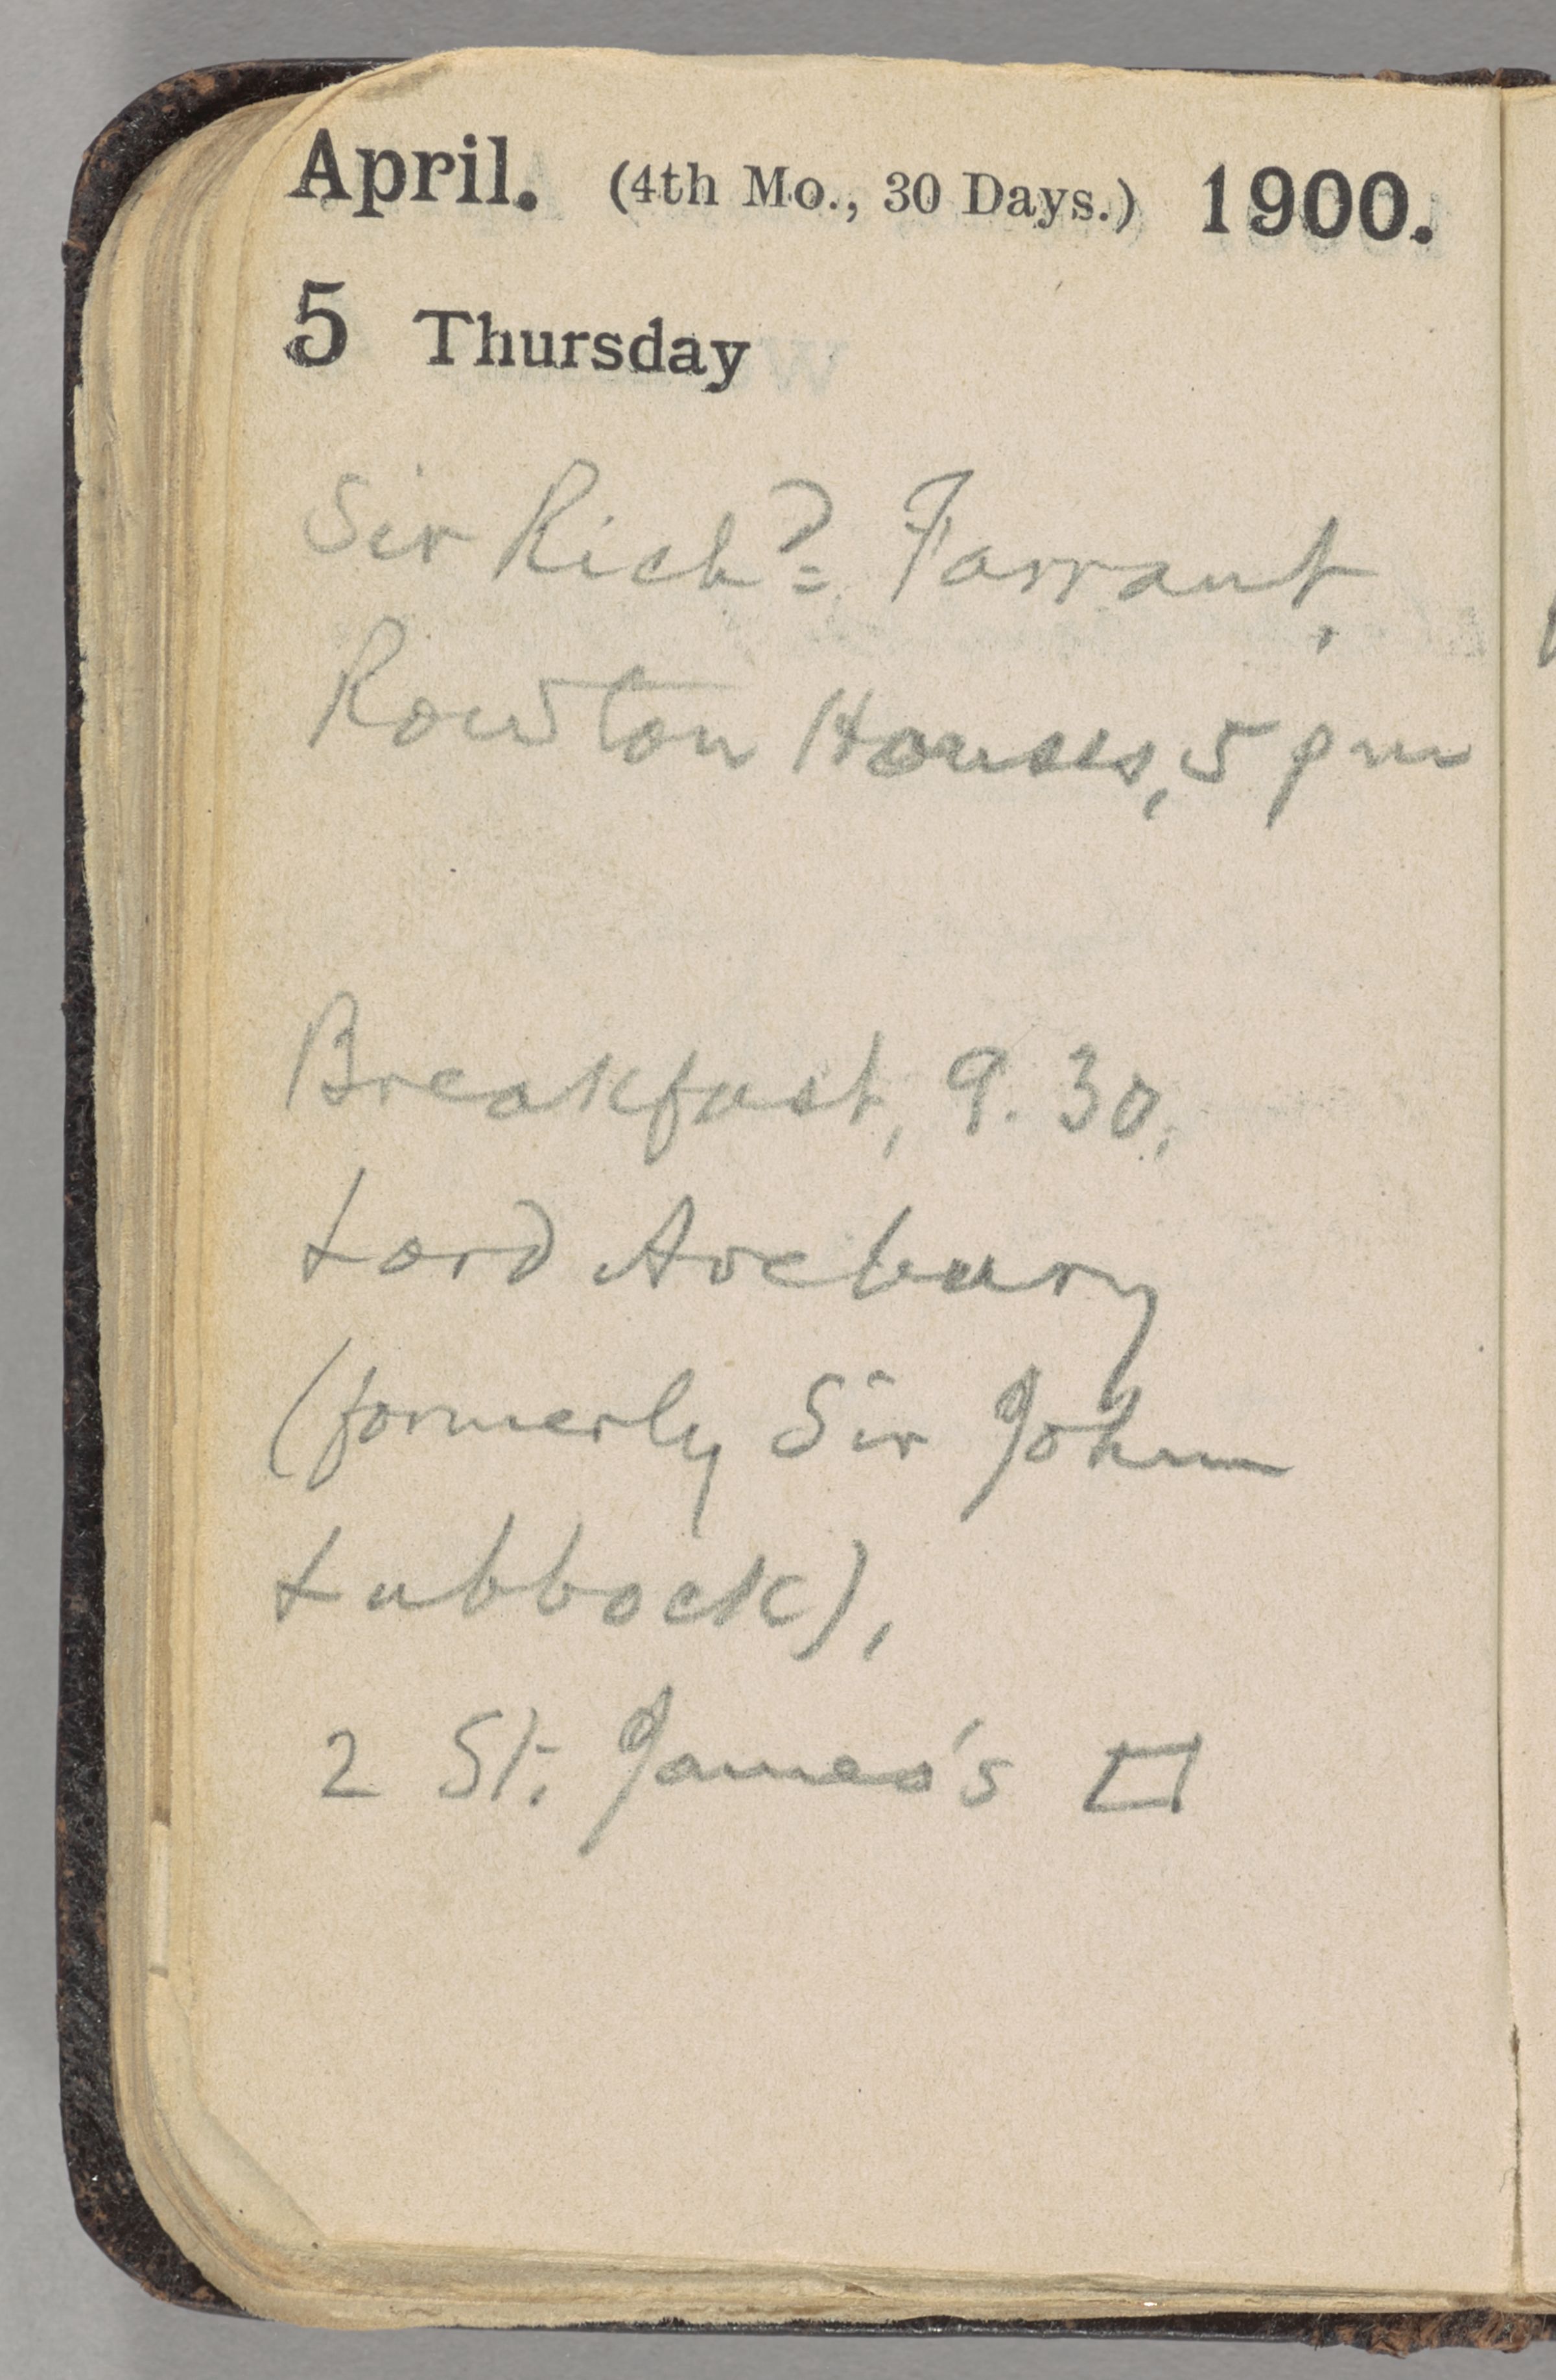 April. (4th Mo., 30 Days.) 1900.
5 Thursday
Sir Richd. Farrant,
Rowton Houses, 5 pm
Breakfast, 9.30,
Lord Avebury
(formerly Sir John
Lubbock),
2 St. James's □